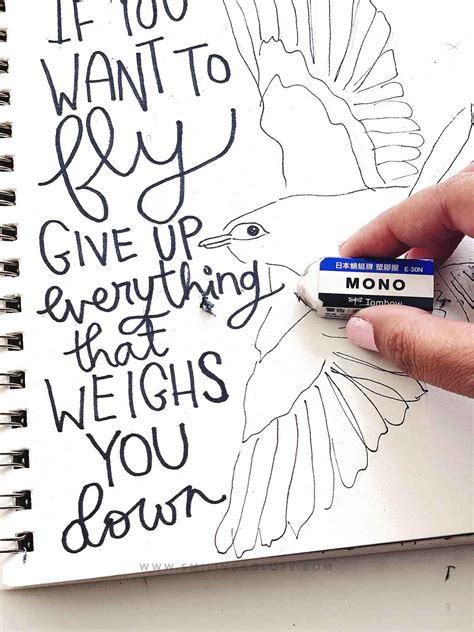 IF YOU
WANT TO
fly
GIVE UP
everything
that
WEIGHS
YOU
down
日本蜻蜓牌 塑膠擦 E-30N
MONO
Tombow
WWW.SMILINGCOLORS.COM